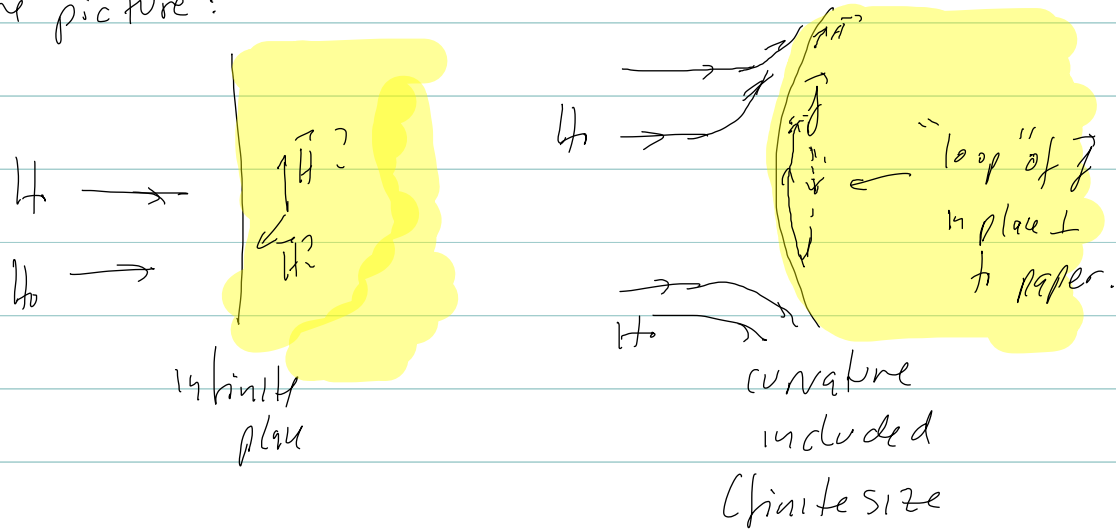 picture?
H₀
H₀
H⃗?
H⃗?
infinite
plane
H₀
H₀
H⃗
j⃗
"loop" of j⃗
in plane ⊥
to paper.
curvature
included
(finite size